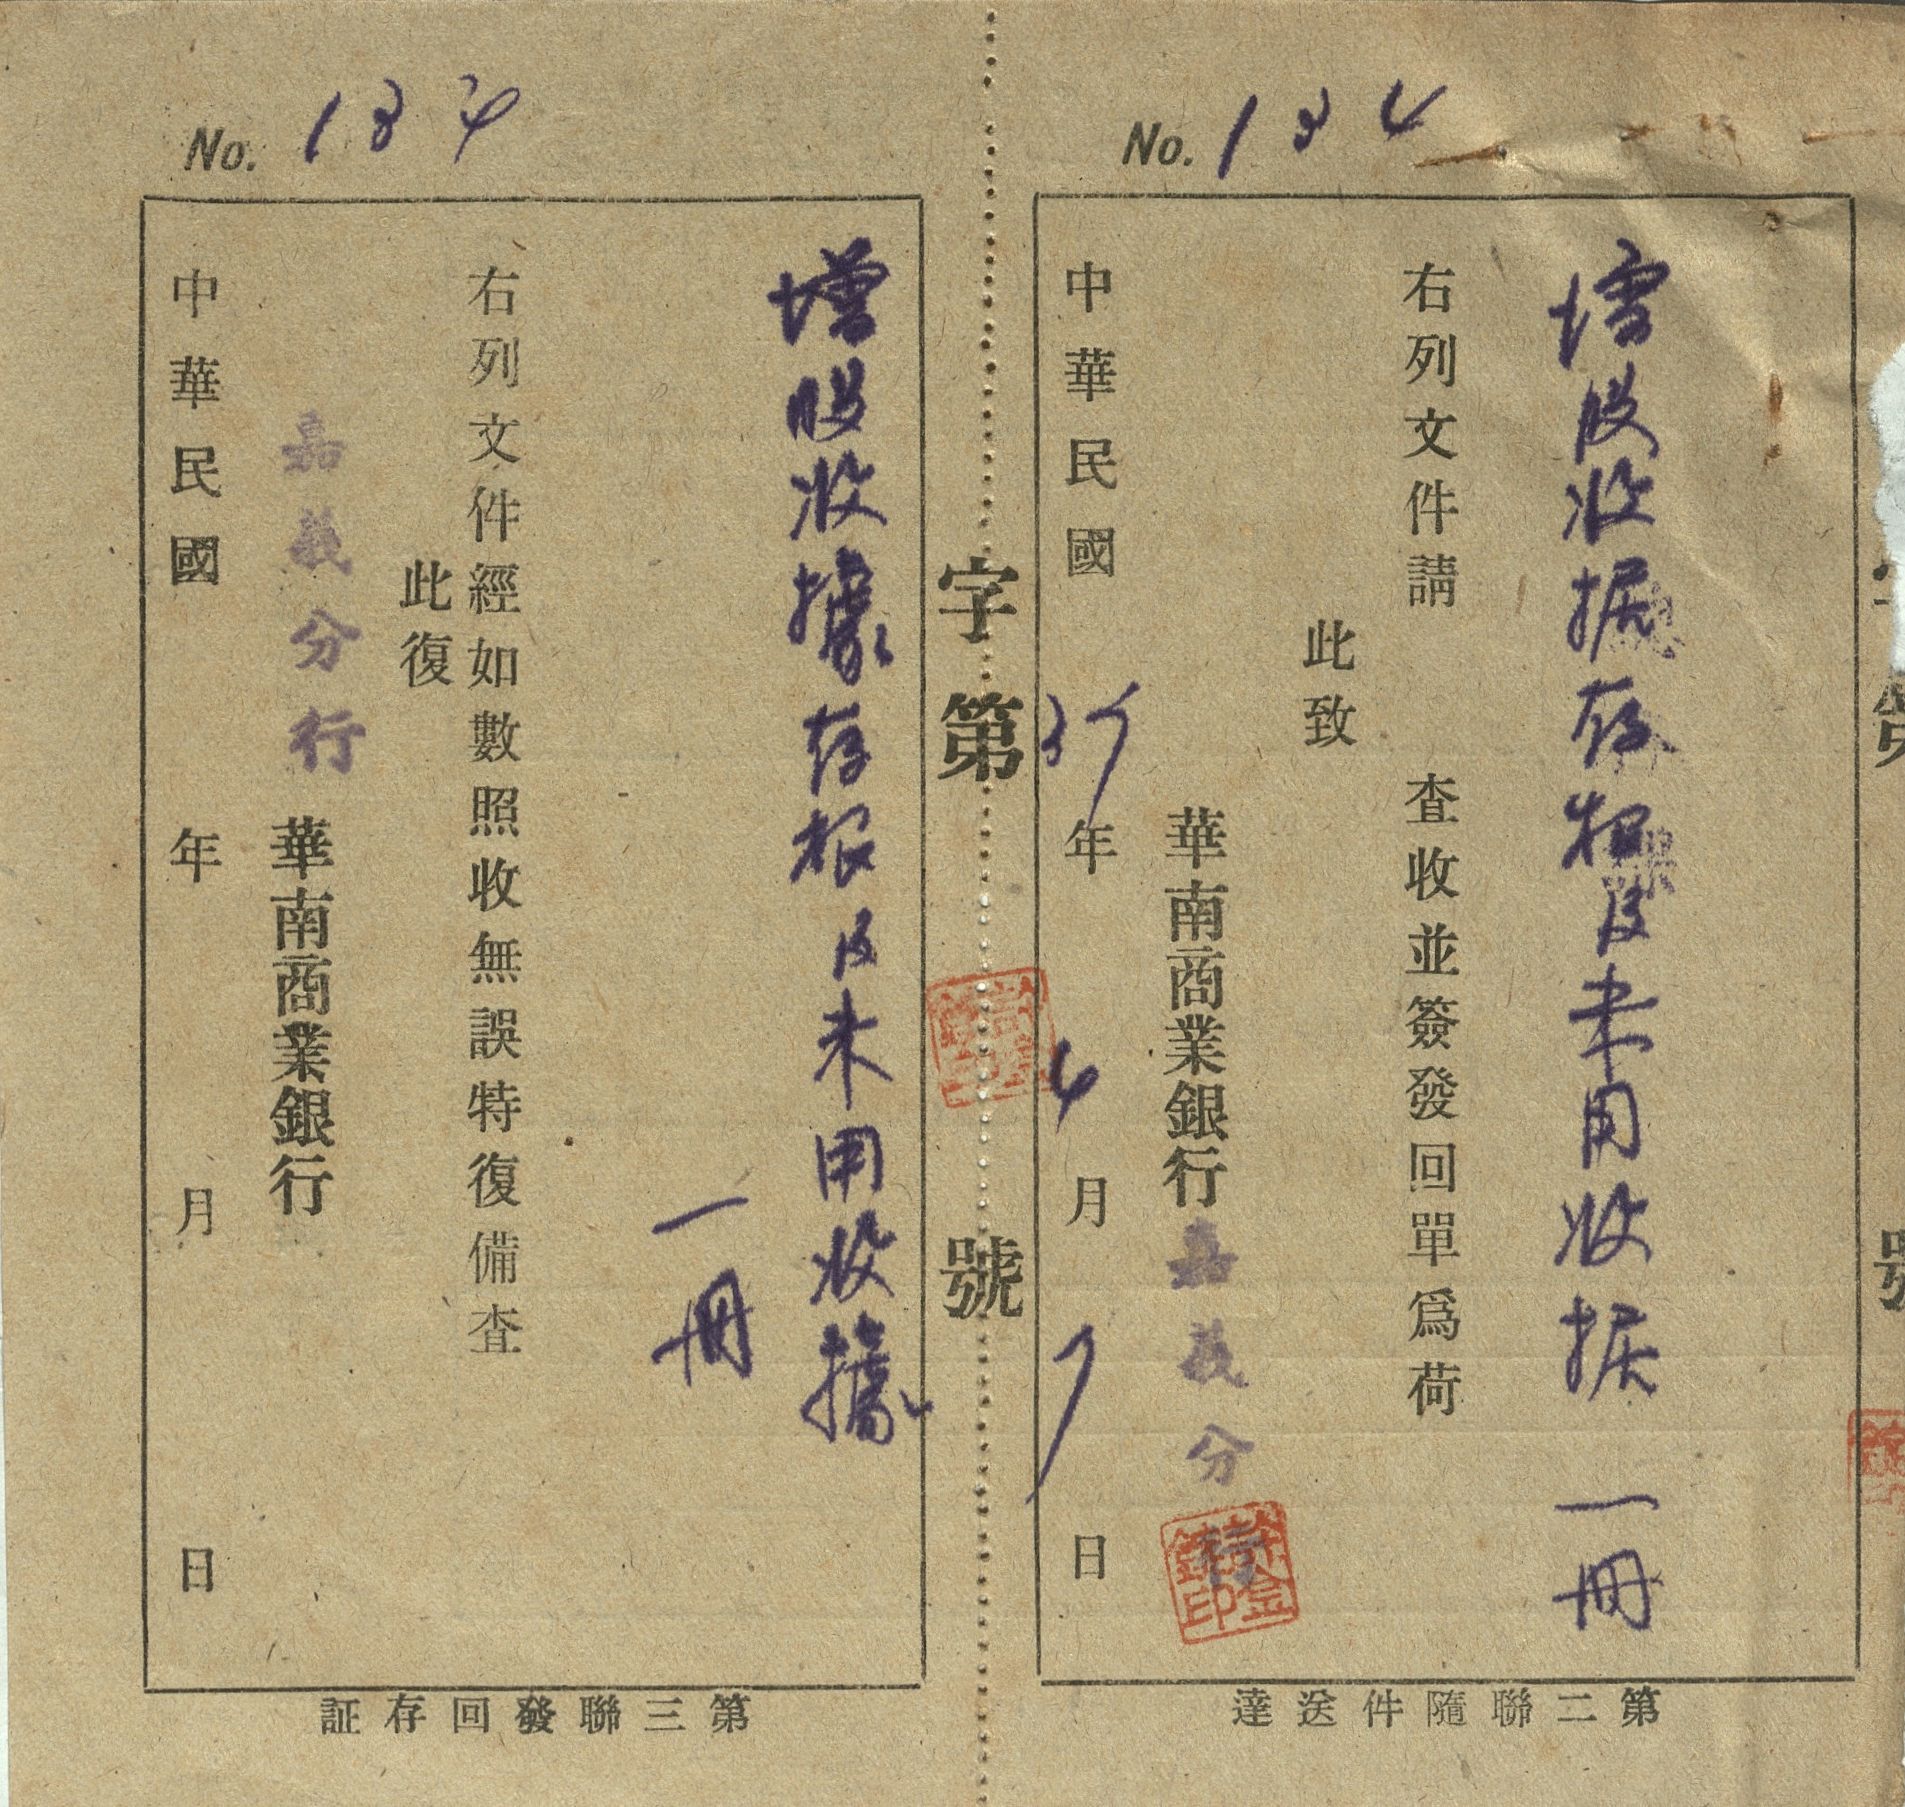 No. 134
增股收据存根及未用收据 一冊
右列文件請 查收並簽發回單爲荷
此致
華南商業銀行嘉義分行
中華民國 35年 4月 7日
第二聯隨件送達
字第 號
No. 134
增股收據存根及未用收據
一冊
右列文件經如數照收無誤特復備查
此復
嘉義分行華南商業銀行
中華民國 年 月 日
第三聯發回存証